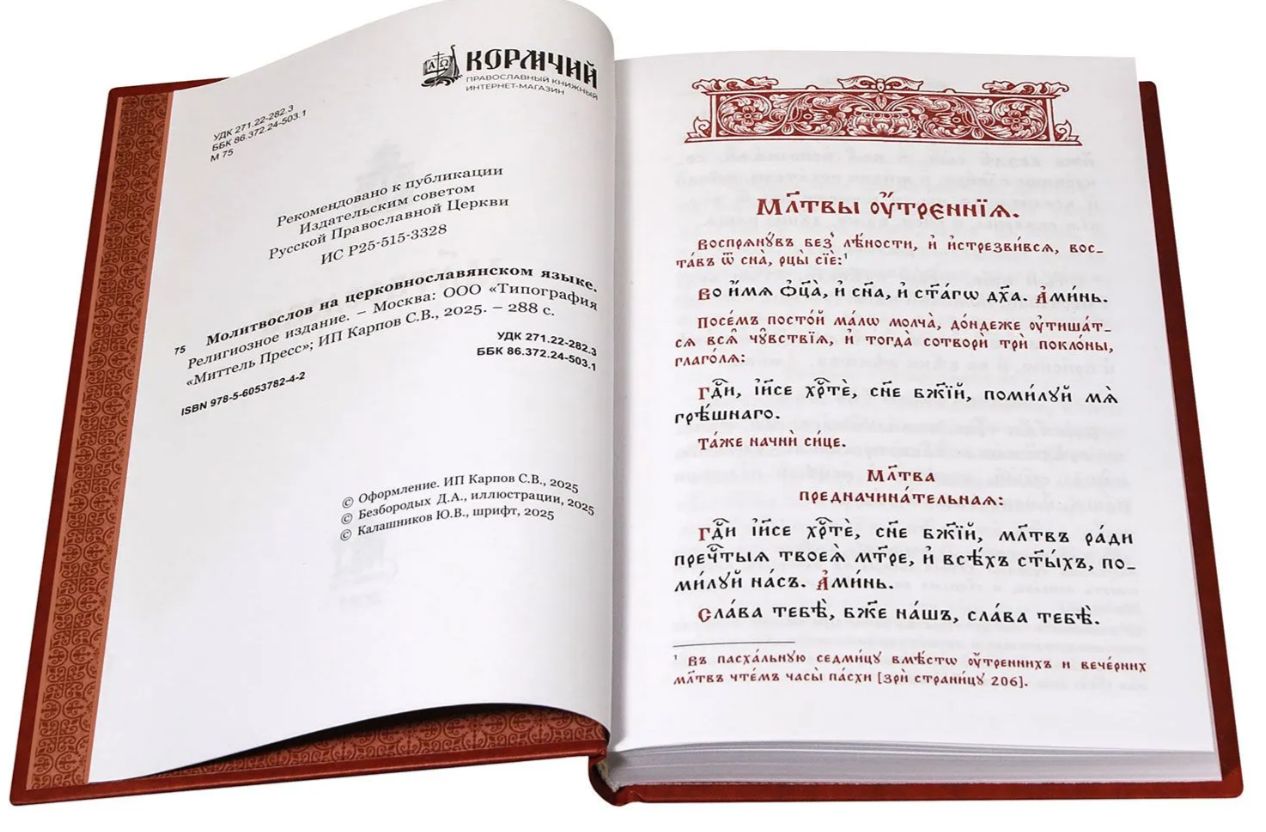 КОРМЧИЙ
ПРАВОСЛАВНЫЙ КНИЖНЫЙ
ИНТЕРНЕТ-МАГАЗИН
УДК 271.22-282.3
ББК 86.372.24-503.1
М 75
Рекомендовано к публикации
Издательским советом
Русской Православной Церкви
ИС Р25-515-3328
Молитвослов на церковнославянском языке.
75 Религиозное издание. – Москва: ООО «Типография
«Миттель Пресс»; ИП Карпов С.В., 2025. – 288 с.
УДК 271.22-282.3
ББК 86.372.24-503.1
ISBN 978-5-6053782-4-2
© Оформление. ИП Карпов С.В., 2025
© Безбородых Д.А., иллюстрации, 2025
© Калашников Ю.В., шрифт, 2025
Мл҃твы ᲂу҆́тренніѧ.
Воспрѧнꙋ́въ без̾ лѣ́ности, и҆ и҆стрезви́всѧ, вос-
та́въ ѿ сна̀, рцы̀ сїѐ:¹
Во и҆́мѧ ѻ҆ц҃а̀, и҆ сн҃а, и҆ ст҃а́гѡ дх҃а. А҆ми́нь.
Посе́мъ посто́й ма́лѡ молча̀, до́ндеже ᲂу҆тиша́т-
сѧ всѧ̑ чꙋ̑вствїѧ, и҆ тогда̀ сотворѝ трѝ покло́ны,
глаго́лѧ:
Гдⷭ҇и, і҆и҃се хрⷭ҇тѐ, сн҃е бж҃їй, поми́лꙋй мѧ̀
грѣ́шнаго.
Та́же начнѝ си́це.
Мл҃тва
предначина́тельнаѧ:
Гдⷭ҇и і҆и҃се хрⷭ҇тѐ, сн҃е бж҃їй, мл҃твъ ра́ди
пречⷭ҇тыѧ твоеѧ̀ мт҃ре, и҆ всѣ́хъ ст҃ы́хъ, по-
ми́лꙋй на́съ. А҆ми́нь.
Сла́ва тебѣ̀, бж҃е на́шъ, сла́ва тебѣ̀.
¹ Въ пасха́льнꙋю седми́цꙋ вмѣ́стѡ ᲂу҆́треннихъ и вече́рних
мл҃твъ чте́мъ часы̀ па́схи [зрѝ страни́цꙋ 206].